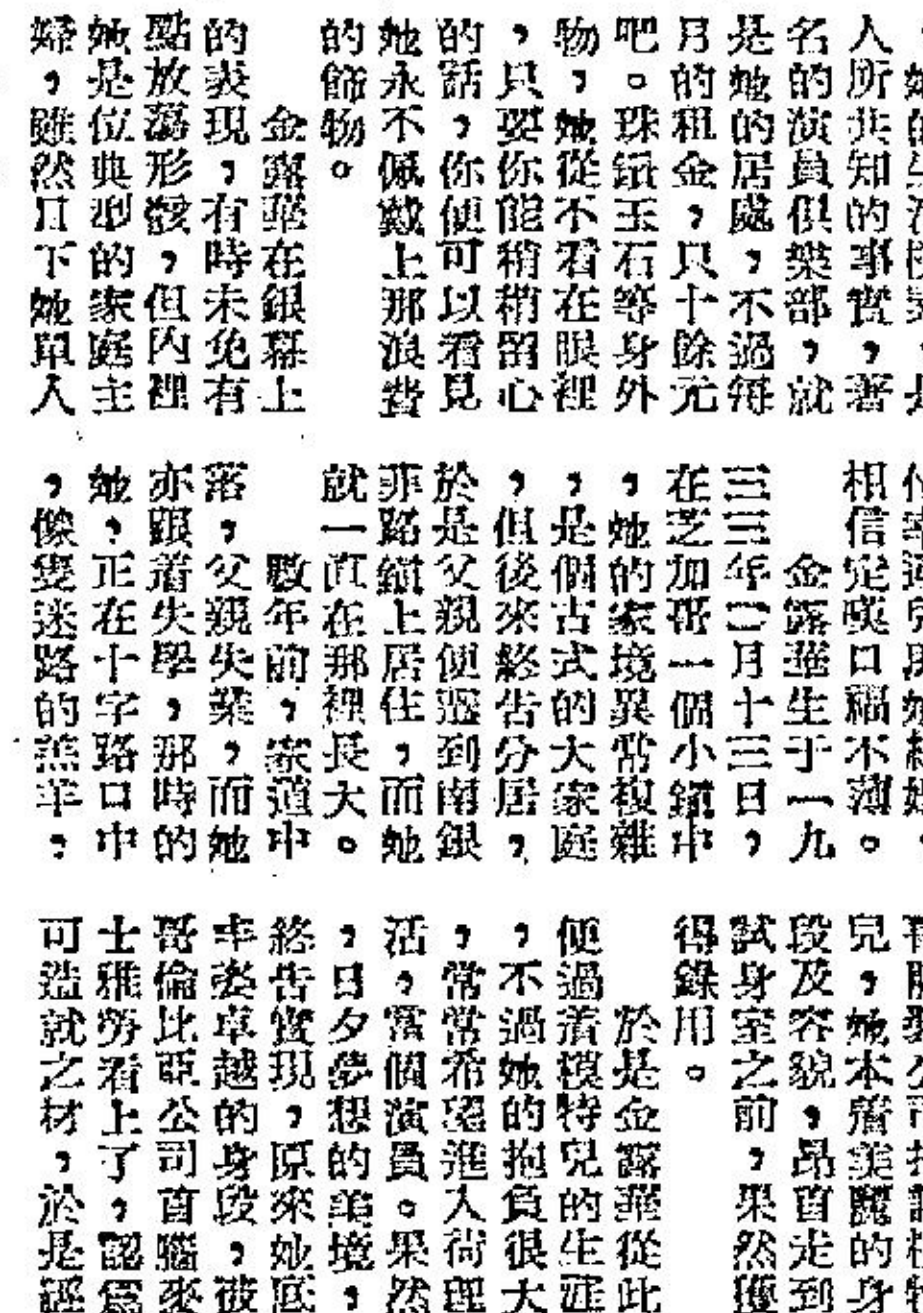 人所共知的事實，著
名的演員俱樂部，就
是她的居處，不過每
月的租金，只十餘元
吧。珠鑽玉石等身外
物，她從不看在眼裡
，只要你能稍稍留心
的話，你便可以看見
她永不佩戴上那浪費
的飾物。
金露華在銀幕上
的表現，有時未免有
點放蕩形骸，但內裡
她是位典型的家庭主
婦，雖然目下她單人
相信定嘆口福不薄。
金露華生于一九
三三年二月十三日，
在芝加哥一個小鎮中
，她的家境異常複雜
，是個古式的大家庭
，但後來終告分居，
於是父親便遷到南銀
菲路鎮上居住，而她
就一直在那裡長大。
數年前，家道中
落，父親失業，而她
亦跟着失學，那時的
她，正在十字路口中
，像隻迷路的羔羊，
兒，她本着美麗的身
段及容貌，昂首走到
試身室之前，果然獲
得錄用。
於是金露華從此
便過着模特兒的生涯
，不過她的抱負很大
，常常希望進入荷理
活，當個演員。果然
，日夕夢想的美境，
終告實現，原來她底
丰姿卓越的身段，被
哥倫比亞公司首腦來
士雅勞看上了，認為
可造就之材，於是經